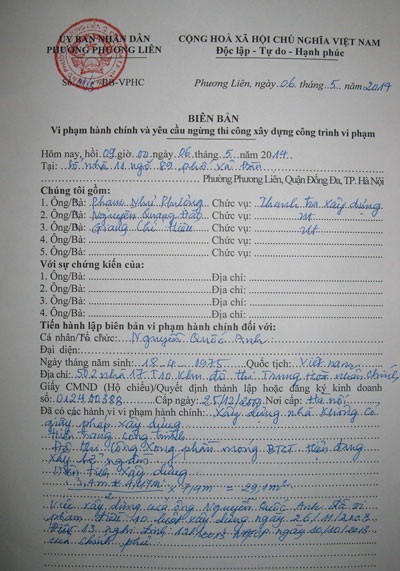 ỦY BAN NHÂN DÂN
PHƯỜNG PHƯƠNG LIÊN
CỘNG HOÀ XÃ HỘI CHỦ NGHĨA VIỆT NAM
Độc lập - Tự do - Hạnh phúc
Số: BB-VPHC
Phương Liên, ngày 06 tháng 5 năm 2014
BIÊN BẢN
Vi phạm hành chính và yêu cầu ngừng thi công xây dựng công trình vi phạm
Hôm nay, hồi 09 giờ 00 ngày 06 tháng 5 năm 2014
Tại: Số nhà 11 ngõ 89 phố Xã Đàn
Phường Phương Liên, Quận Đống Đa, TP. Hà Nội
Chúng tôi gồm:
1. Ông/Bà: Phạm Như Phượng Chức vụ: Thanh tra xây dựng
2. Ông/Bà: Nguyễn Quang Đạt Chức vụ: nt
3. Ông/Bà: Giang Chí Hiếu Chức vụ: nt
4. Ông/Bà: Chức vụ:
5. Ông/Bà: Chức vụ:
Với sự chứng kiến của:
1. Ông/Bà: Địa chỉ:
2. Ông/Bà: Địa chỉ:
3. Ông/Bà: Địa chỉ:
4. Ông/Bà: Địa chỉ:
Tiến hành lập biên bản vi phạm hành chính đối với:
Cá nhân/Tổ chức: Nguyễn Quốc Anh
Đại diện:
Ngày tháng năm sinh: 18-4-1975 Quốc tịch: Việt nam
Địa chỉ: 502 nhà 17.T.10 Khu đô thị Trung Hoà Nhân Chính
Giấy CMND (Hộ chiếu)/Quyết định thành lập hoặc đăng ký kinh doanh
số: 012400388 Cấp ngày: 25/12/ Nơi cấp: Hà nội
Đã có các hành vi vi phạm hành chính: Xây dựng nhà không có
giấy phép xây dựng
Hiện trạng công trình
Đổ thi công xong phần móng BTCT hiện đang
xây bể ngầm
Diện tích xây dựng
= 29,1m²
Việc xây dựng của ông Nguyễn Quốc Anh đã vi
phạm điều 10 luật xây dựng ngày 26/11/2003
điều 03 nghị định 121/2013 ngày 10/10/2013
của chính phủ